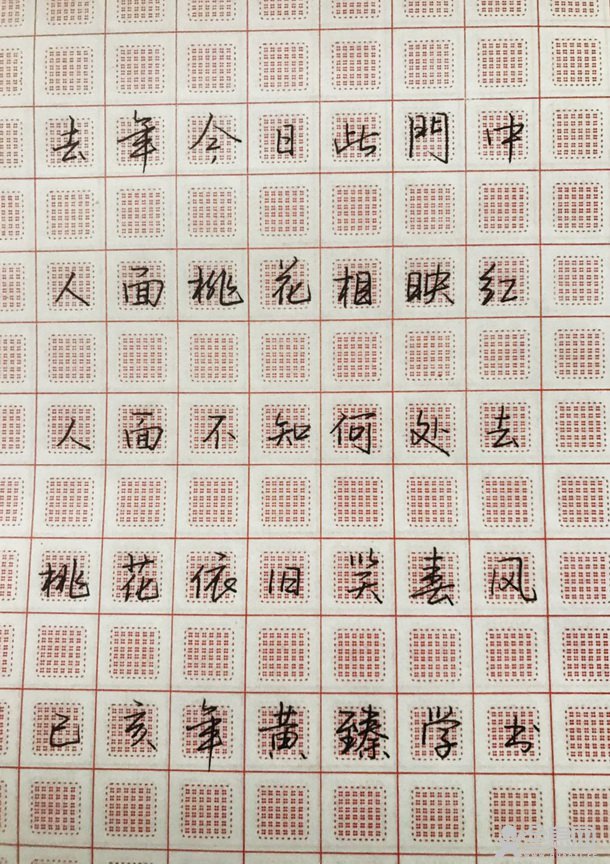 去年今日此門中
人面桃花相映红
人面不知何处去
桃花依旧笑春风
己亥年黄臻学书